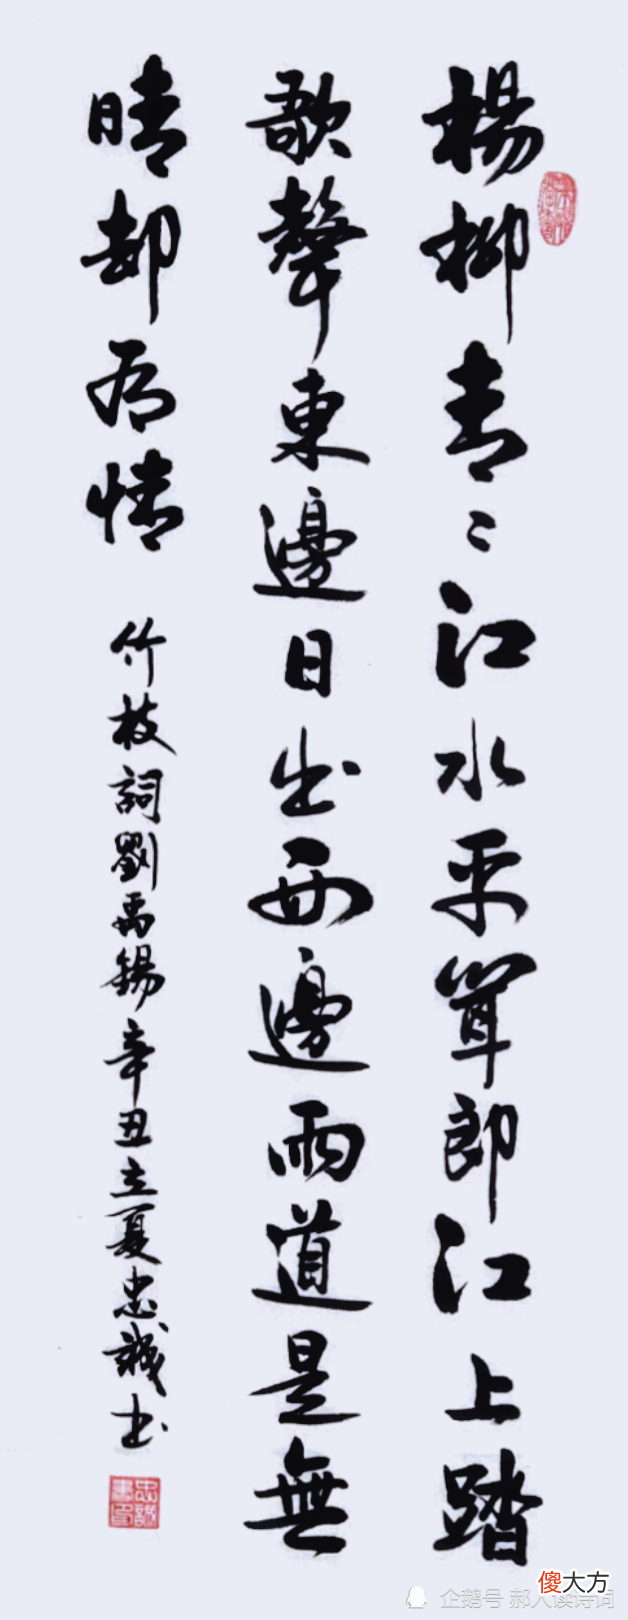 楊柳青〻江水平聞郎江上踏
歌聲東邊日出西邊雨道是無
晴却有情 竹枝詞劉禹錫辛丑立夏忠誠書
忠誠書印
傻大方
企鹅号 郝人读诗词